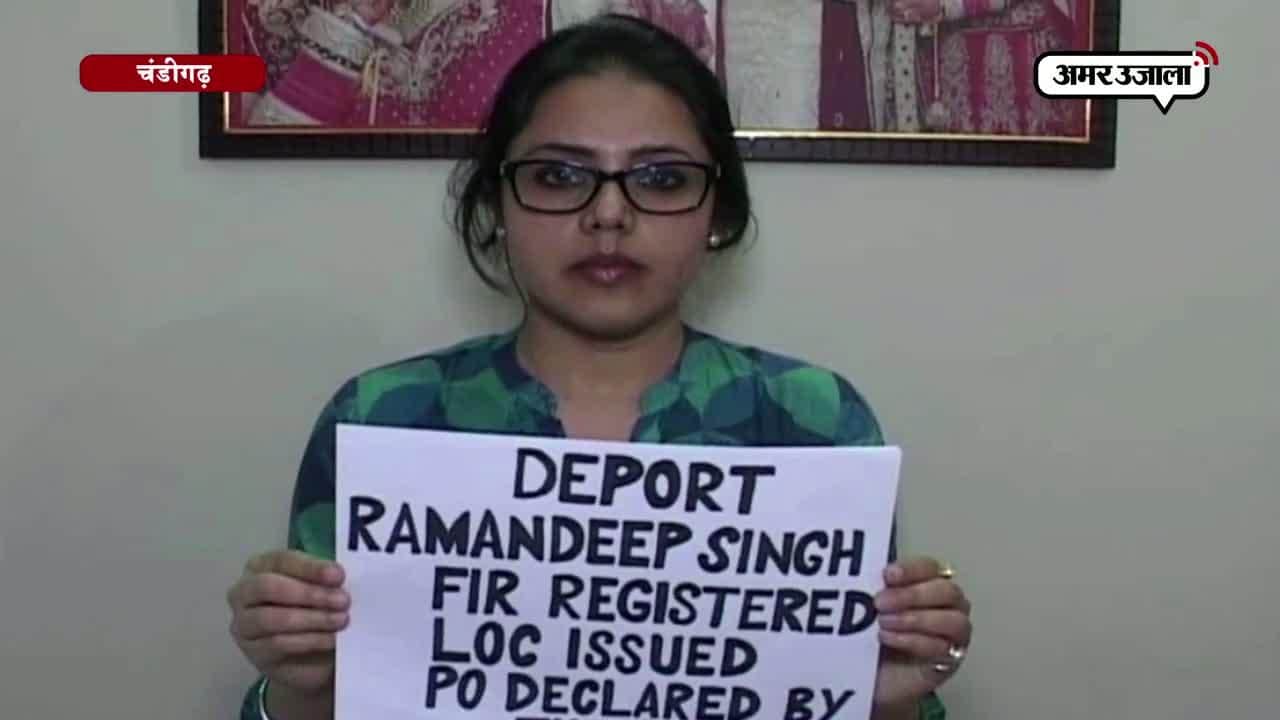 चंडीगढ़
अमर उजाला
DEPORT
RAMANDEEP SINGH
FIR REGISTERED
LOC ISSUED
PO DECLARED BY